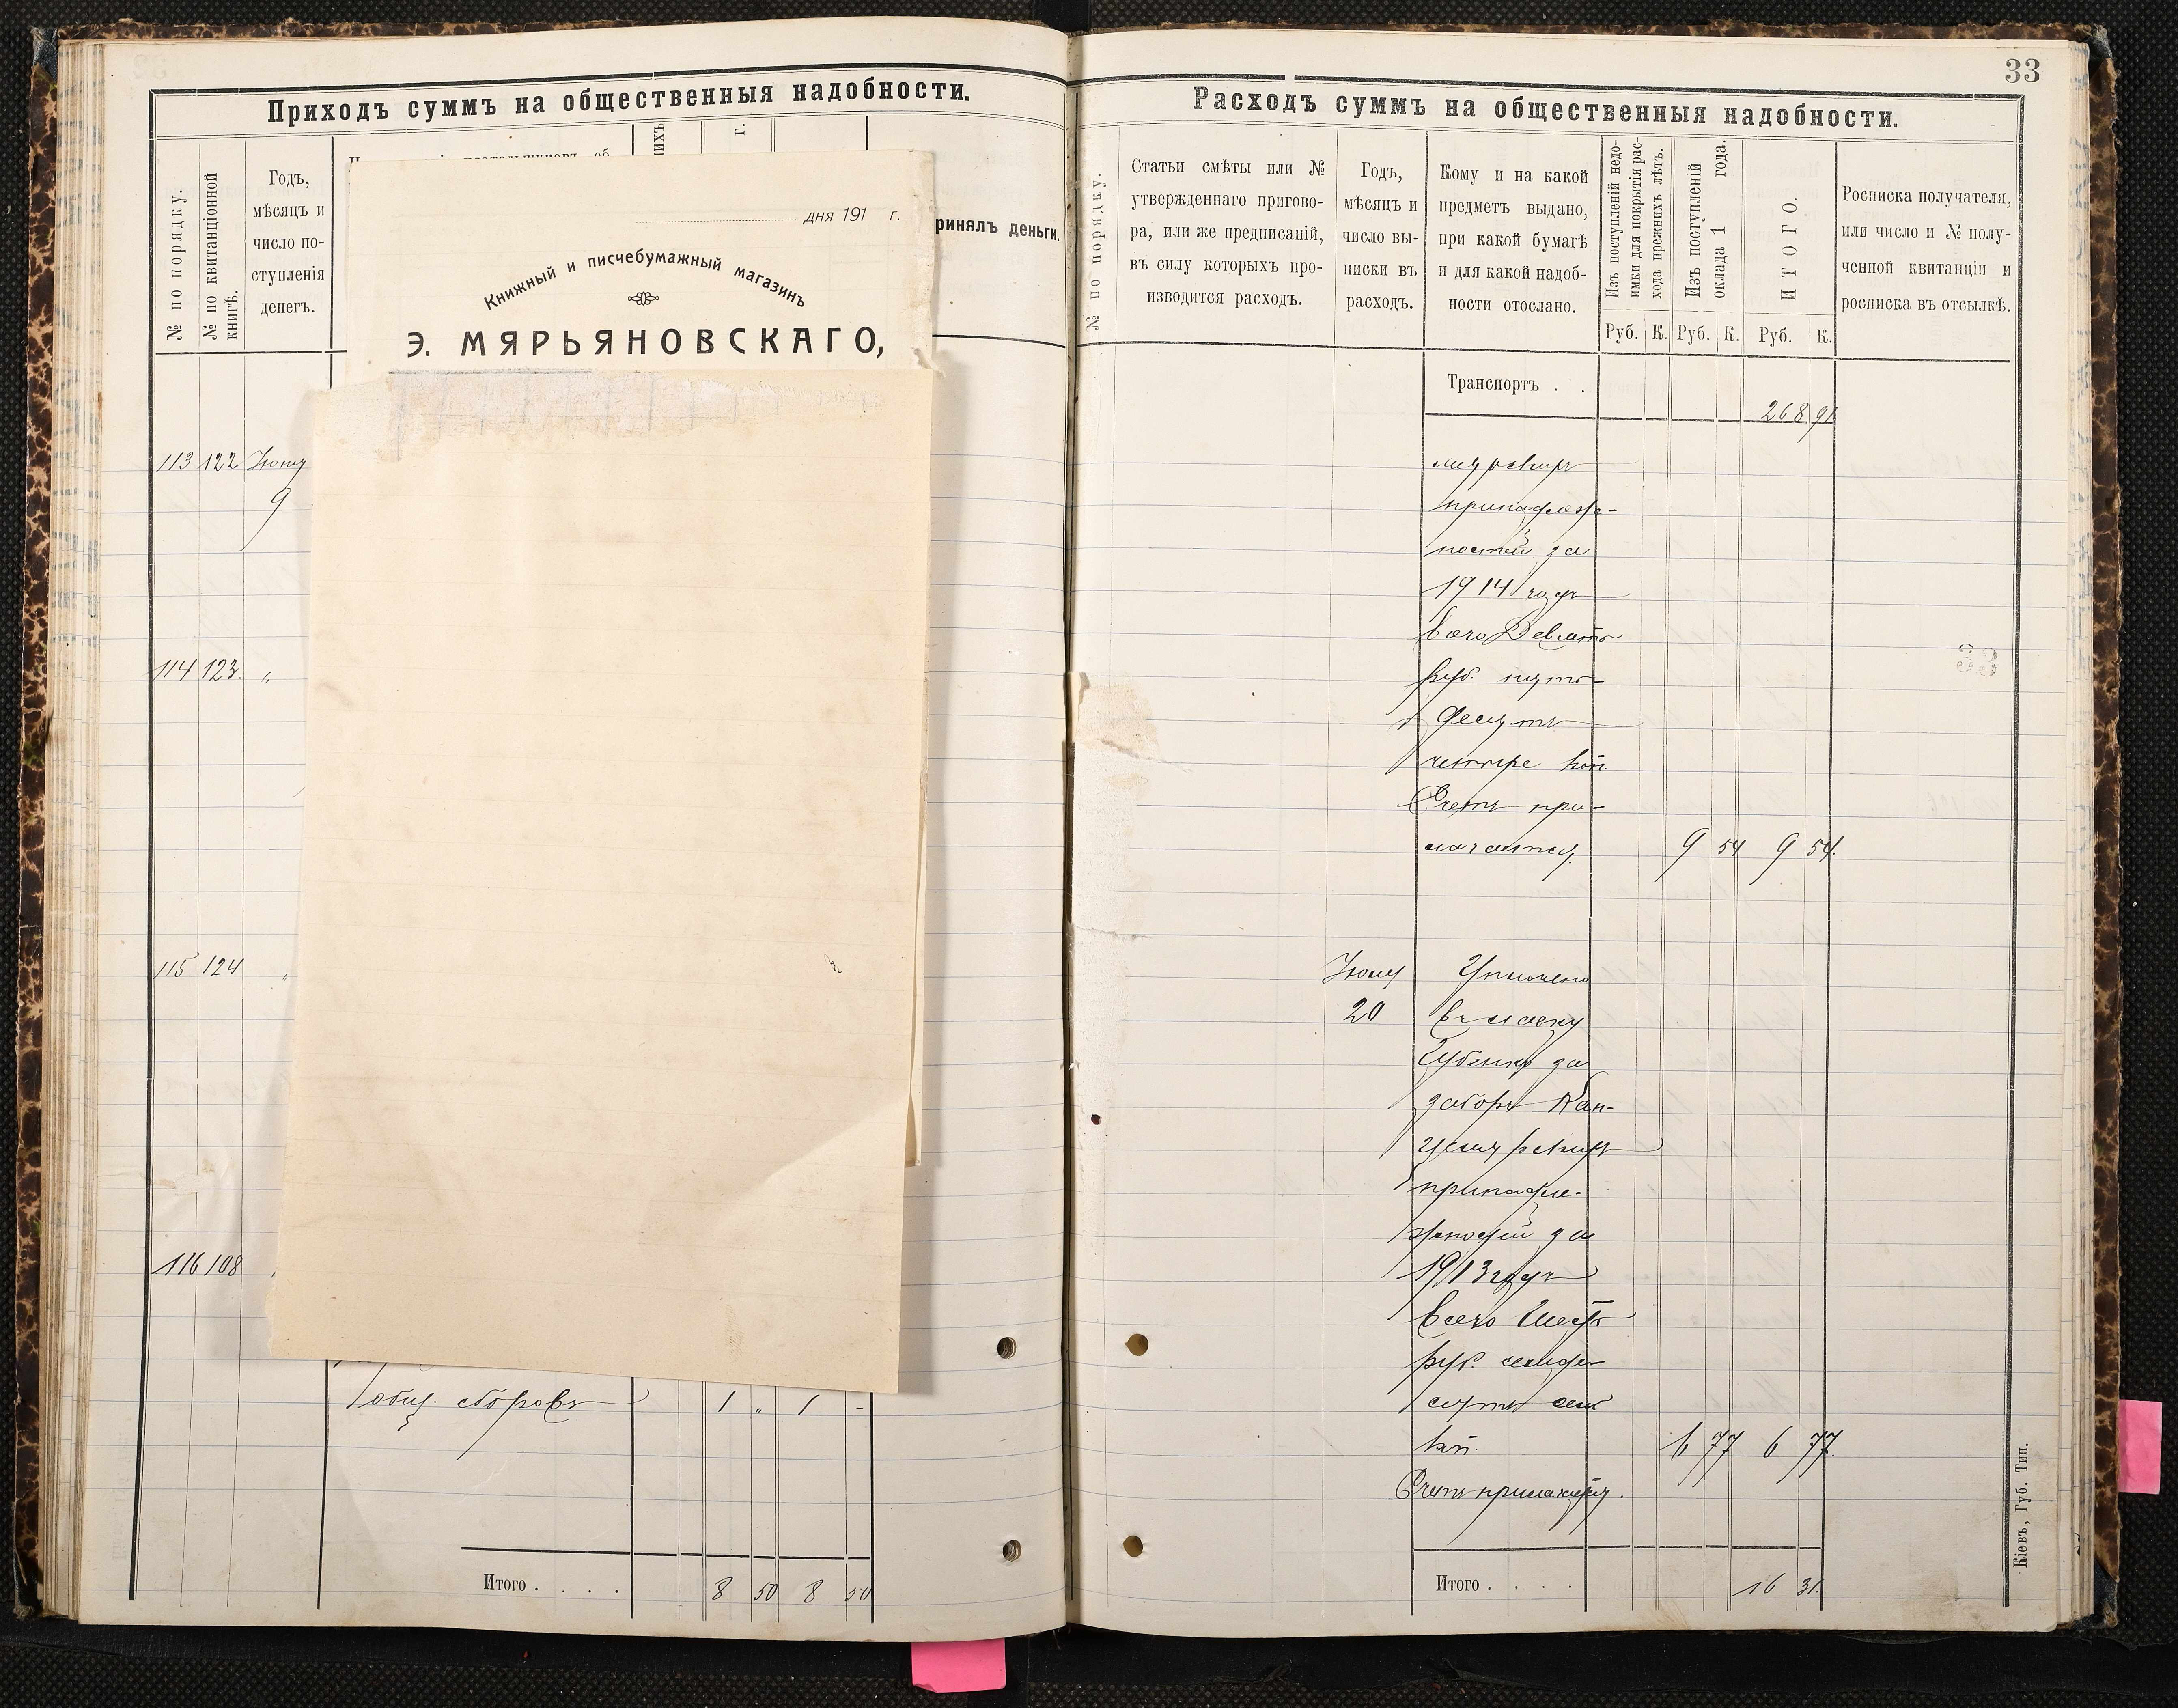 Приходъ суммъ на общественныя надобности.
№ по порядку.
№ по квитанціонной
книгѣ.
Годъ,
мѣсяцъ и
число по-
ступленія
денегъ.
г.
дня 191 г.
Книжный и писчебумажный магазинъ
Э. МЯРЬЯНОВСКАГО,
ринялъ деньги.
113 122 Іюня
9
114 123. "
115 124 "
116 108
общ. сборовъ 1 " 1 -
Итого . . . . 8 50 8 50
33
Расходъ суммъ на общественныя надобности.
№ по порядку.
Статьи смѣты или №
утвержденнаго пригово-
ра, или же предписаній,
въ силу которыхъ про-
изводится расходъ.
Годъ,
мѣсяцъ и
число вы-
писки въ
расходъ.
Кому и на какой
предметъ выдано,
при какой бумагѣ
и для какой надоб-
ности отослано.
Изъ поступленій недо-
имки для покрытія рас-
хода прежнихъ лѣтъ.
Изъ поступленій
оклада 1 года.
ИТОГО.
Руб. К. Руб. К. Руб. К.
Росписка получателя,
или число и № полу-
ченной квитанціи и
росписка въ отсылкѣ.
Транспортъ . .
268 91
лярскихъ
принадлеж-
ностей за
1914 годъ
всего Девять
руб. пять
десятъ
четыре коп.
Счетъ при-
лагается. 9 54 9 54.
Іюня Уплачено
20
за
заборъ Кан-
целярскихъ
принадле-
жностей за
1913 годъ
всего Шесть
руб. семьде-
сятъ семь
коп. 6 77 6 77.
Счетъ прилагается.
Итого . . . . 16 31.
Кіевъ, Губ. Тип.